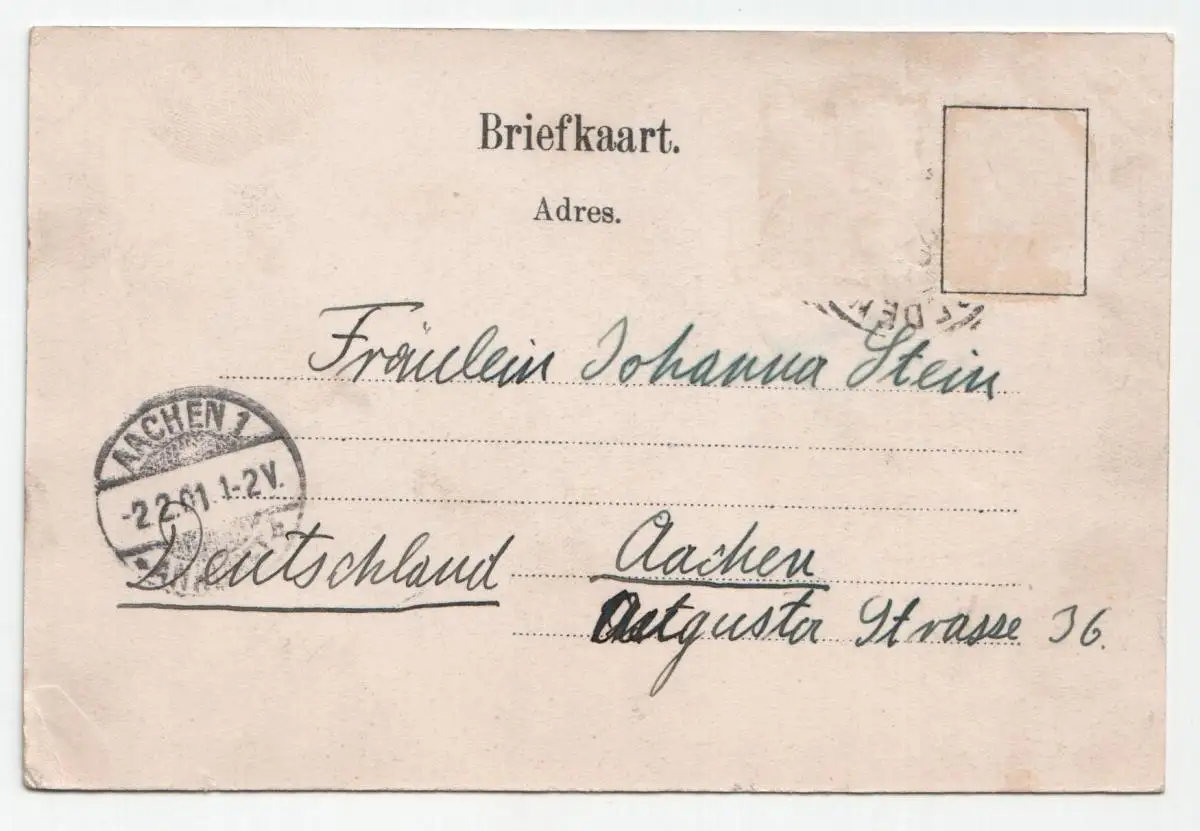 Briefkaart.
Adres.
DEN
Fräulein Johanna Stein
AACHEN 1
-2.2.01.1-2V.
Deutschland
Aachen
Augusta Strasse 36.